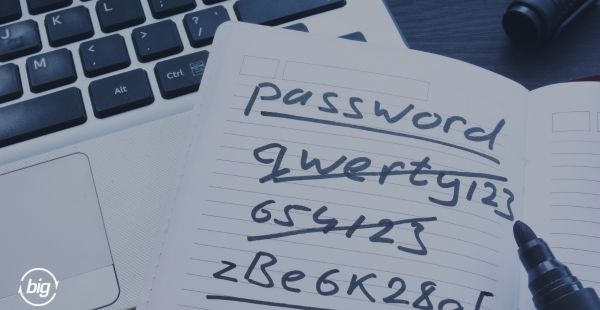 K L
J
M < , > . ? /
Alt Ctrl
password
qwerty123
654123
big